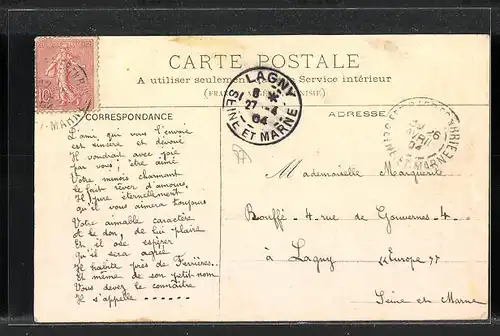 CARTE POSTALE
A utiliser seulement Service intérieur
CORRESPONDANCE
ADRESSE
LAGNY
27 -4
04
SEINE ET MARNE
L'ami, qui vous l'envoie
est sincère et dévoué
Il voudrait avec joie
par vous, être aimé
Votre minois charmant
le fait rêver d'amour,
Il jure éternellement
qu'il vous aimera toujours
Votre aimable caractère
et le don, de lui plaire
Et il ose espérer
Qu'il sera agréé
Je habite près de Ferrières..
et même de son petit nom
Vous devez le connaître
Il s'appelle ------
Mademoiselle Marguerite
Bouffé 4 rue de Gouvernes 4
à Lagny
Seine et Marne